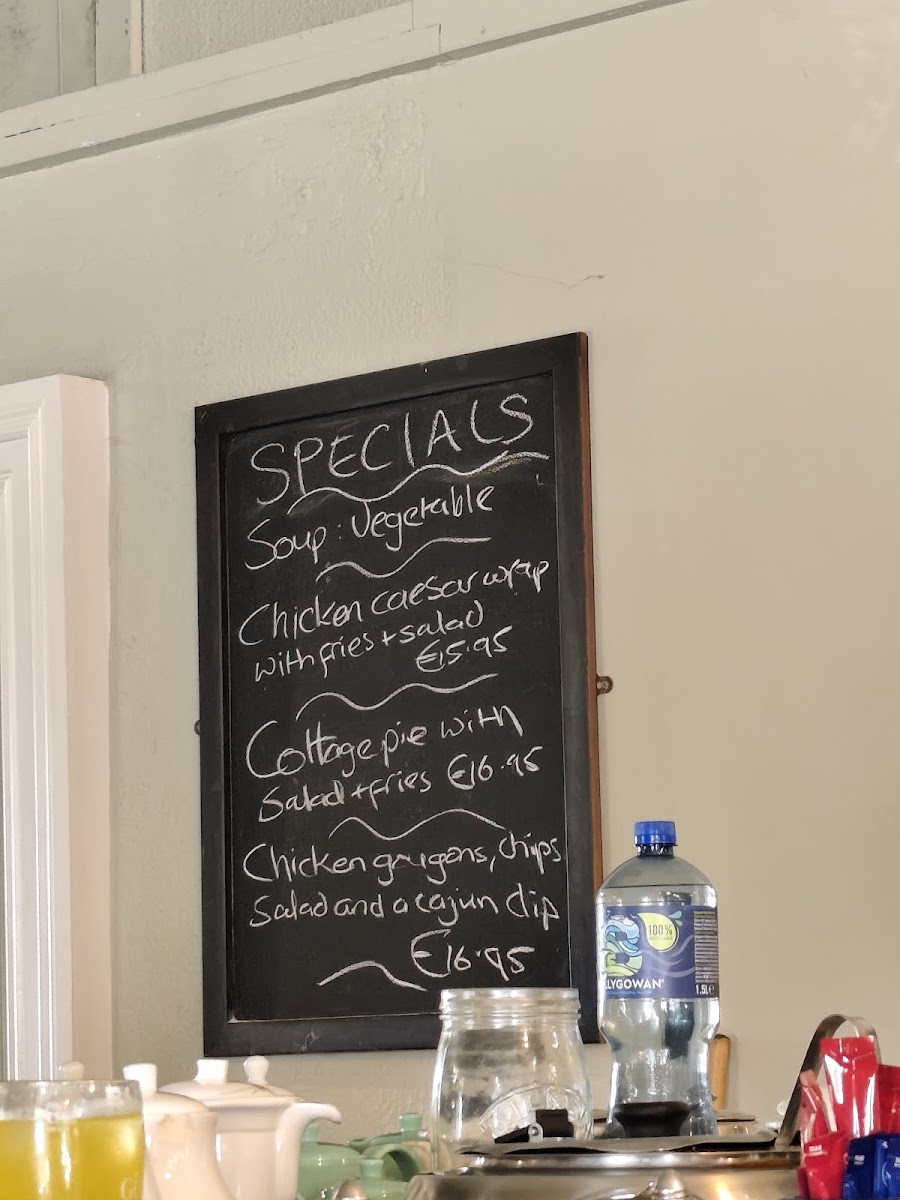 SPECIALS
Soup: Vegetable
Chicken caesar wrap
with fries + salad
€15.95
Cottage pie with
Salad + fries €16.95
Chicken gougons, chips
Salad and a cajun dip
€16.95
100%
LLYGOWAN
1.5L e